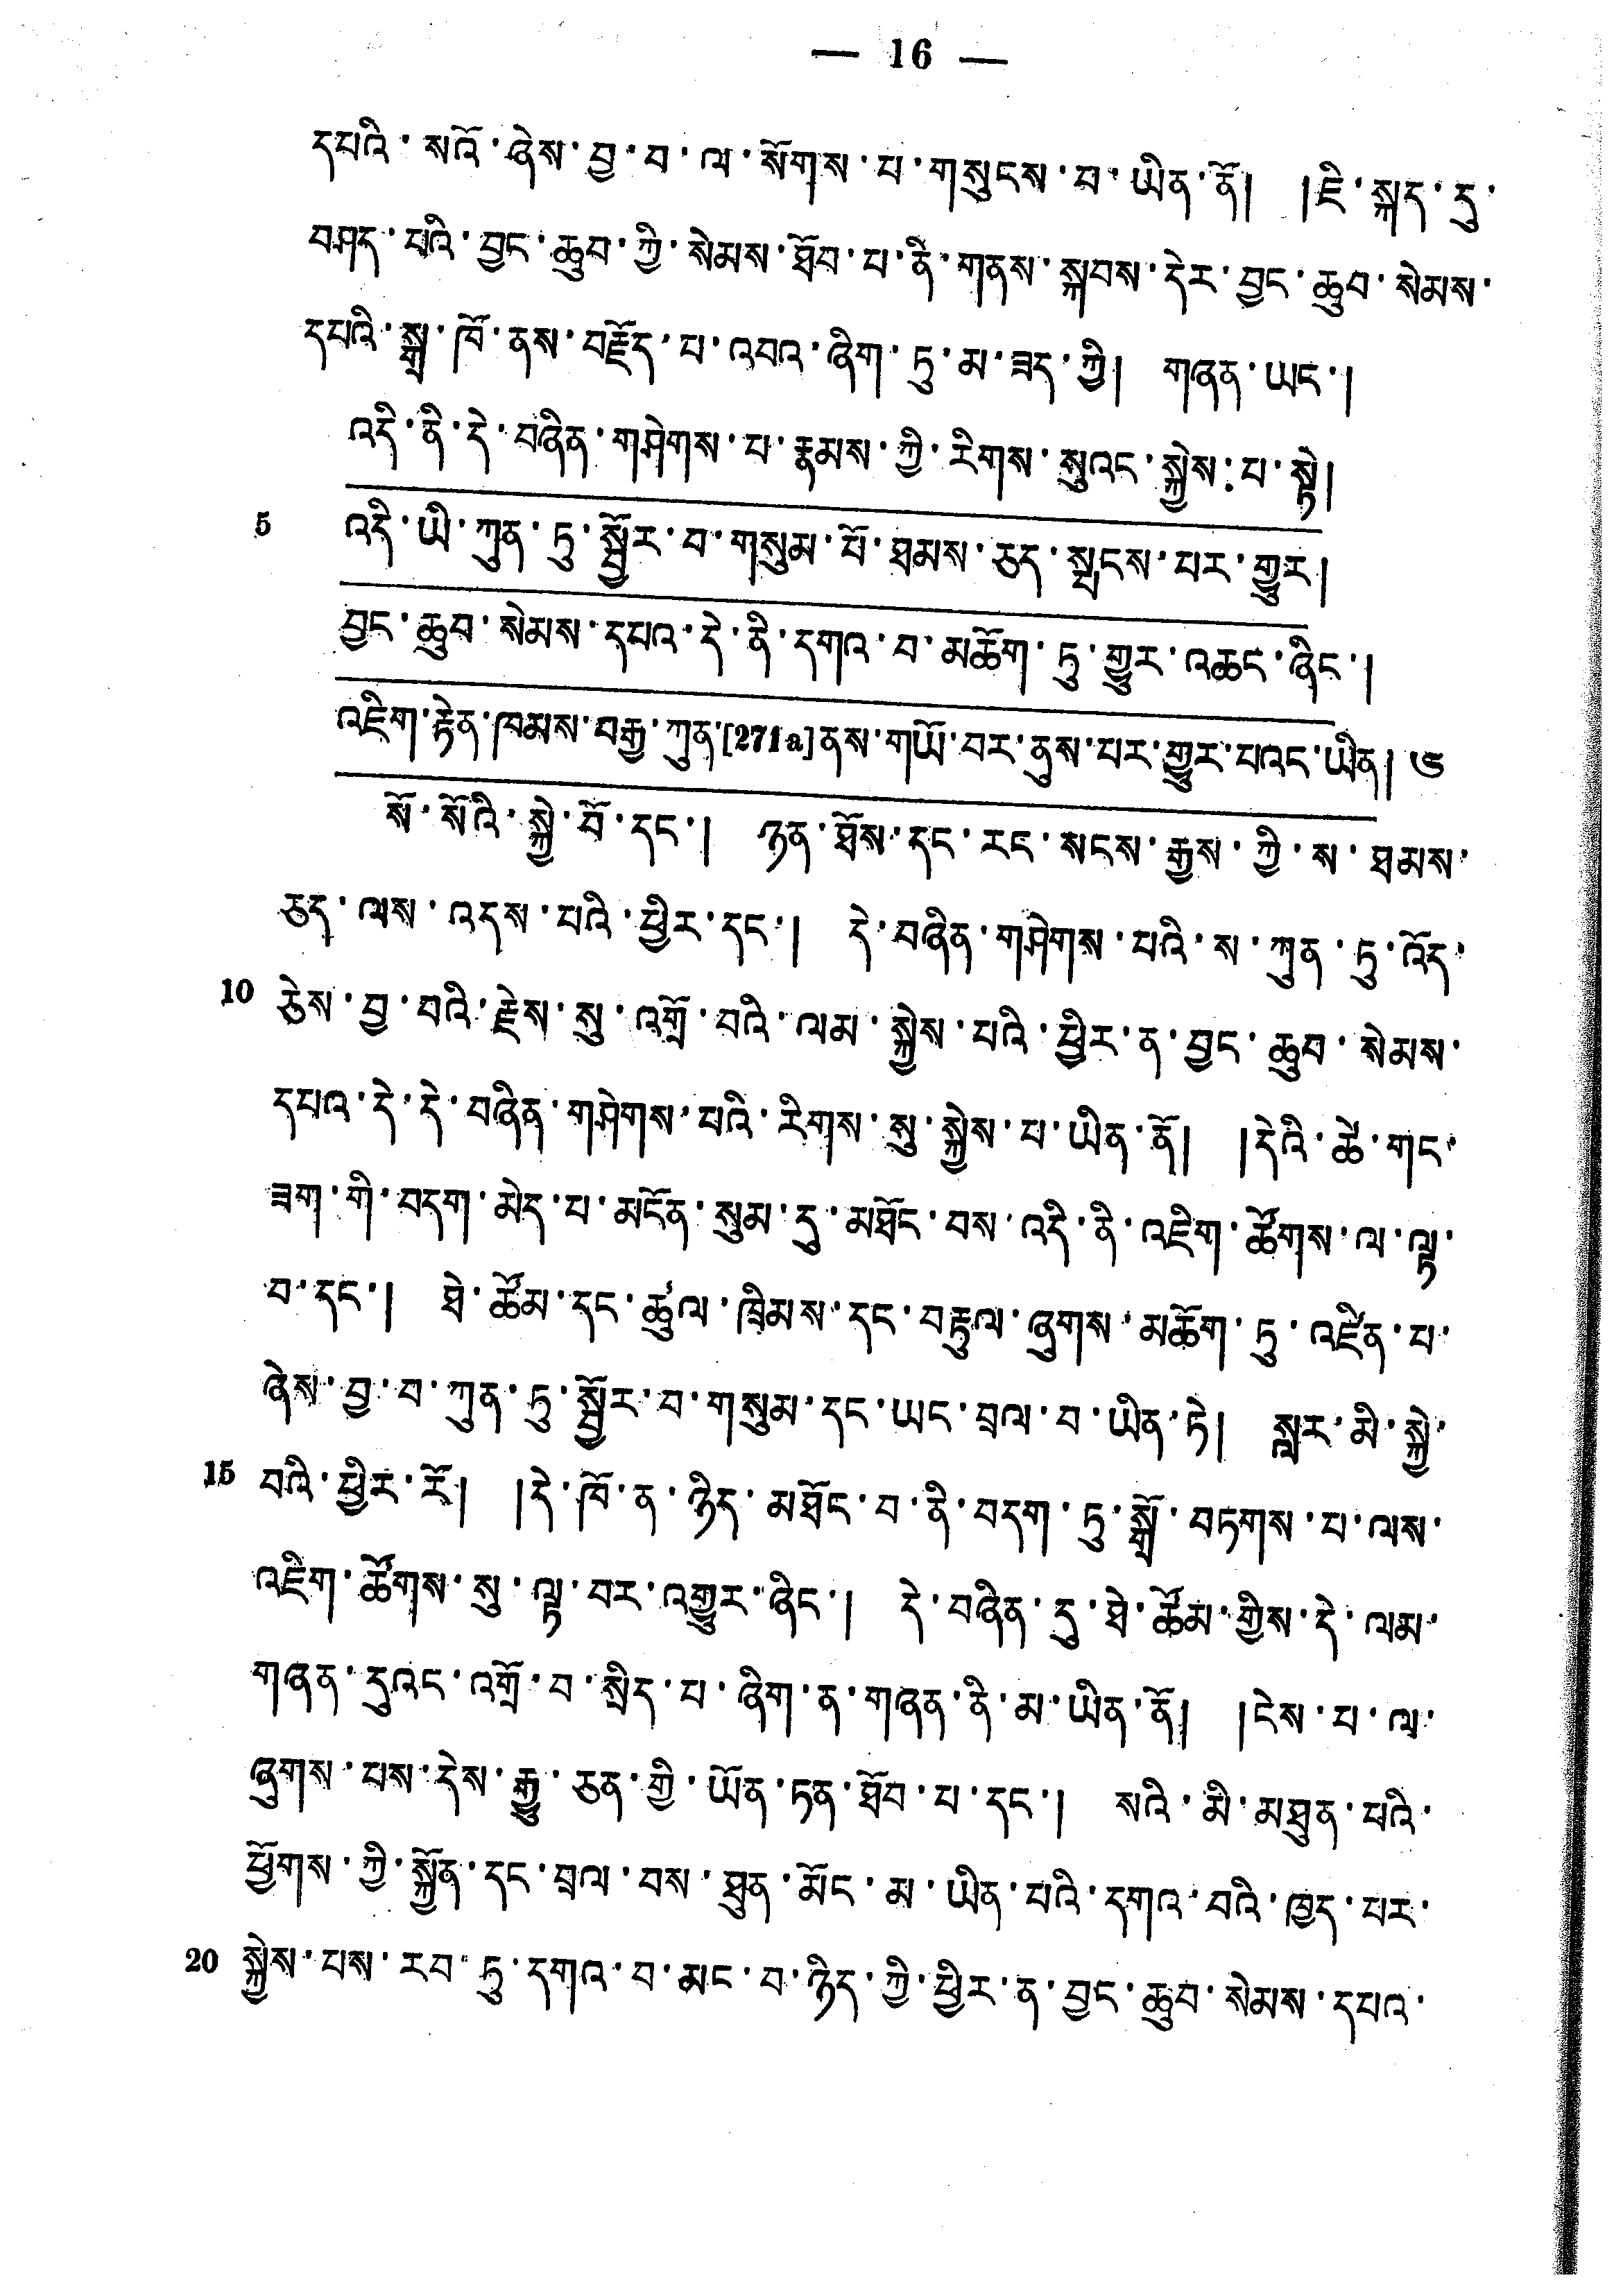 — 16 —
དཔའི་སའོ་ཞེས་བྱ་བ་ལ་སོགས་པ་གསུངས་པ་ཡིན་ནོ། །ཇི་སྐད་དུ་
བཤད་པའི་བྱང་ཆུབ་ཀྱི་སེམས་ཐོབ་པ་ནི་གནས་སྐབས་དེར་བྱང་ཆུབ་སེམས་
དཔའི་སྒྲ་ཁོ་ནས་བརྗོད་པ་འབའ་ཞིག་ཏུ་མ་ཟད་ཀྱི། གཞན་ཡང་།
འདི་ནི་དེ་བཞིན་གཤེགས་པ་རྣམས་ཀྱི་རིགས་སུའང་སྐྱེས་པ་སྟེ།
5 འདི་ཡི་ཀུན་ཏུ་སྦྱོར་བ་གསུམ་པོ་ཐམས་ཅད་སྤངས་པར་གྱུར།
བྱང་ཆུབ་སེམས་དཔའ་དེ་ནི་དགའ་བ་མཆོག་ཏུ་གྱུར་འཆང་ཞིང་།
འཇིག་རྟེན་ཁམས་བརྒྱ་ཀུན་[271a]ནས་གཡོ་བར་ནུས་པར་གྱུར་པའང་ཡིན། ༧
སོ་སོའི་སྐྱེ་བོ་དང་། ཉན་ཐོས་དང་རང་སངས་རྒྱས་ཀྱི་ས་ཐམས་
ཅད་ལས་འདས་པའི་ཕྱིར་དང་། དེ་བཞིན་གཤེགས་པའི་ས་ཀུན་ཏུ་འོད་
10 ཅེས་བྱ་བའི་རྗེས་སུ་འགྲོ་བའི་ལམ་སྐྱེས་པའི་ཕྱིར་ན་བྱང་ཆུབ་སེམས་
དཔའ་དེ་དེ་བཞིན་གཤེགས་པའི་རིགས་སུ་སྐྱེས་པ་ཡིན་ནོ། །དེའི་ཚེ་གང་
ཟག་གི་བདག་མེད་པ་མངོན་སུམ་དུ་མཐོང་བས་འདི་ནི་འཇིག་ཚོགས་ལ་ལྟ་
བ་དང་། ཐེ་ཚོམ་དང་ཚུལ་ཁྲིམས་དང་བརྟུལ་ཞུགས་མཆོག་ཏུ་འཛིན་པ་
ཞེས་བྱ་བ་ཀུན་ཏུ་སྦྱོར་བ་གསུམ་དང་ཡང་བྲལ་བ་ཡིན་ཏེ། སླར་མི་སྐྱེ་
15 བའི་ཕྱིར་རོ། །དེ་ཁོ་ན་ཉིད་མཐོང་བ་ནི་བདག་ཏུ་སྒྲོ་བཏགས་པ་ལས་
འཇིག་ཚོགས་སུ་ལྟ་བར་འགྱུར་ཞིང་། དེ་བཞིན་དུ་ཐེ་ཚོམ་གྱིས་དེ་ལམ་
གཞན་དུའང་འགྲོ་བ་སྲིད་པ་ཞིག་ན་གཞན་ནི་མ་ཡིན་ནོ། །ངེས་པ་ལ་
ཞུགས་པས་དེས་རྒྱུ་ཅན་གྱི་ཡོན་ཏན་ཐོབ་པ་དང་། སའི་མི་མཐུན་པའི་
ཕྱོགས་ཀྱི་སྐྱོན་དང་བྲལ་བས་ཐུན་མོང་མ་ཡིན་པའི་དགའ་བའི་ཁྱད་པར་
20 སྐྱེས་པས་རབ་ཏུ་དགའ་བ་མང་བ་ཉིད་ཀྱི་ཕྱིར་ན་བྱང་ཆུབ་སེམས་དཔའ་